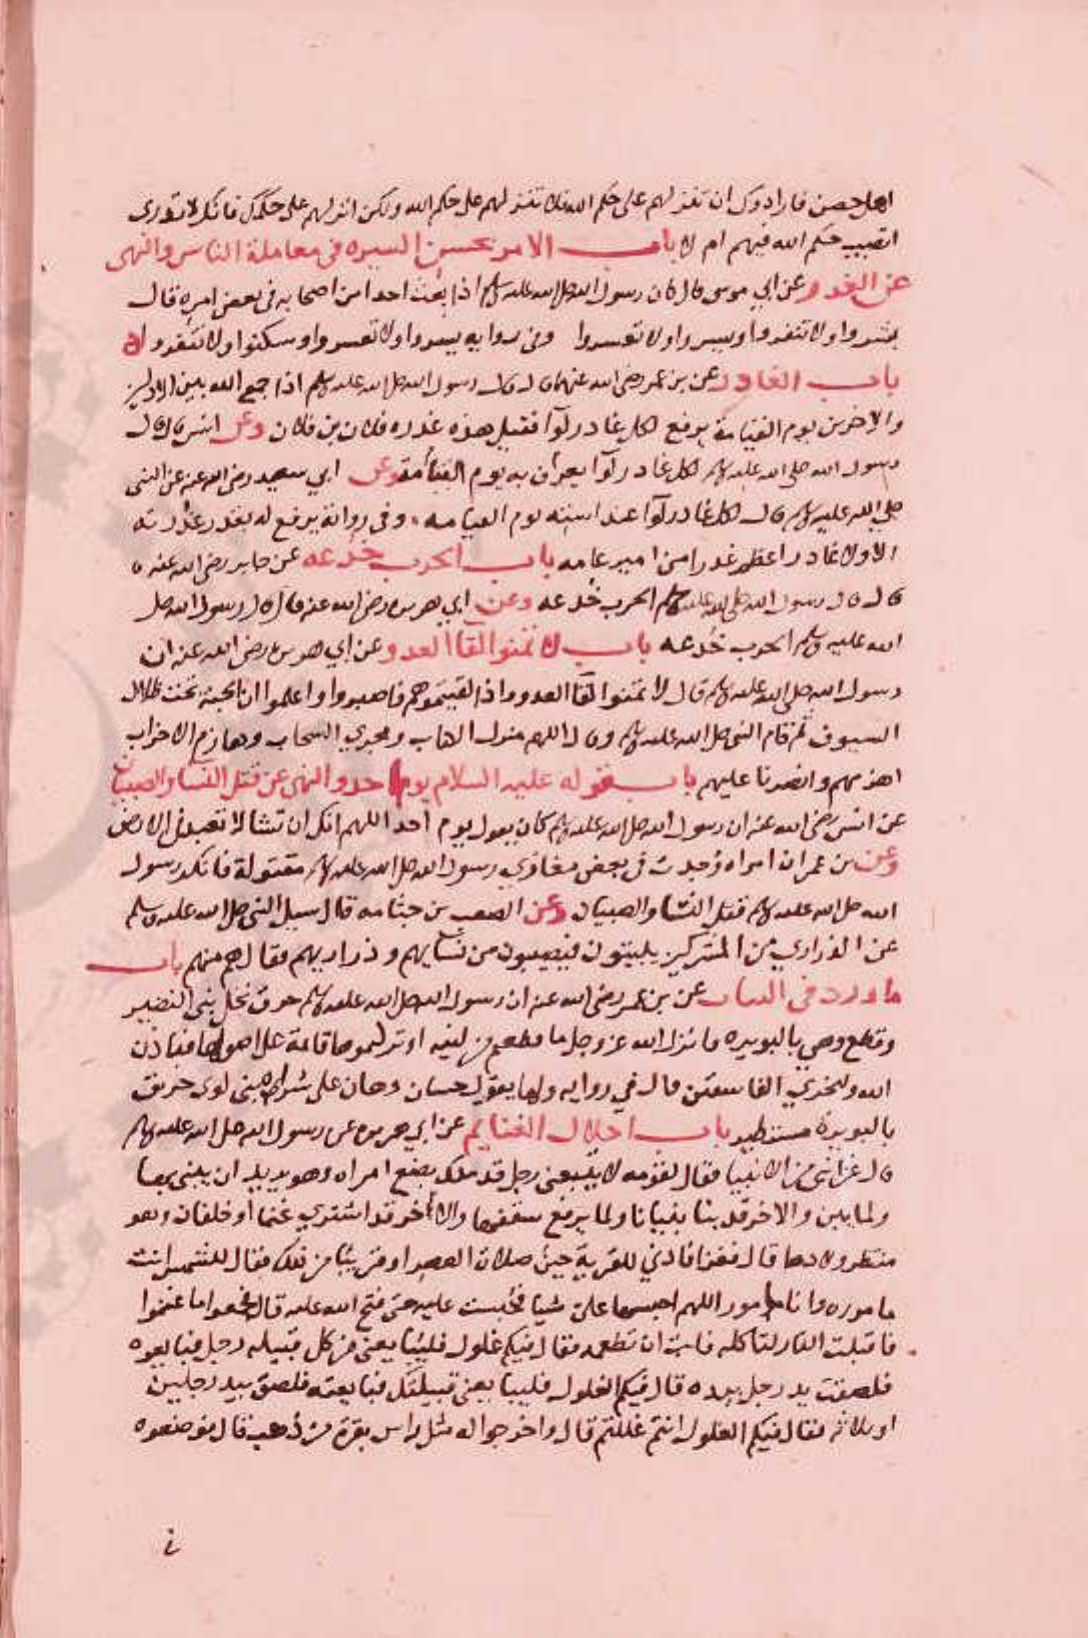 اهل حصن فارادوك ان تنزلهم على حكم الله فلا تنزلهم على حكم الله ولكن انزلهم على حكمك فانك لا تدري
اتصيب حكم الله فيهم ام لا باب الامر بحسن السيره في معاملة الناس والنهي
عن الغدر عن ابي موسى قال كان رسول الله صلى الله عليه وسلم اذا بعث احدا من اصحابه في بعض امره قال
بشروا ولا تنفروا ويسروا ولا تعسروا وفي روايه يسروا ولا تعسروا وسكنوا ولا تنفروا
باب الغادر عن بن عمر رضي الله عنهما قال قال رسول الله صلى الله عليه وسلم اذا جمع الله بين الاولين
والاخرين يوم القيامة يرفع لكل غادر لوآ فقيل هذه غدره فلان بن فلان وعن انس قال قال
رسول الله صلى الله عليه وسلم لكل غادر لوآ يعرف به يوم القيامة وعن ابي سعيد رضي الله عنه عن النبي
صلى الله عليه وسلم قال لكل غادر لوآ عند استه يوم القيامه وفي رواية يرفع له بقدر غدرته
الا ولا غادر اعظم غدرا من امير عامه باب الحرب خدعه عن جابر رضي الله عنه
قال قال رسول الله صلى الله عليه وسلم الحرب خدعه وعن ابي هريره رضي الله عنه قال قال رسول الله صلى
الله عليه وسلم الحرب خدعه باب لا تمنوا لقا العدو عن ابي هريره رضي الله عنه ان
رسول الله صلى الله عليه وسلم قال لا تمنوا لقآ العدو واذا لقيتموهم فاصبروا واعلموا ان الجنة تحت ظلال
السيوف ثم قام النبي صلى الله عليه وسلم وقال اللهم منزل الكتاب ومجري السحاب وهازم الاحزاب
اهزمهم وانصرنا عليهم باب قوله عليه السلام يوم احد والنهي عن قتل النسا والصبيان
عن انس رضي الله عنه ان رسول الله صلى الله عليه وسلم كان يقول يوم احد اللهم انك ان تشا لا تعبد في الارض
وعن بن عمر ان امراه وجدت في بعض مغازي رسول الله صلى الله عليه وسلم مقتولة فانكر رسول
الله صلى الله عليه وسلم قتل النسا والصبيان وعن الصعب بن جثامه قال سيل النبي صلى الله عليه وسلم
عن الذراري من المشركين يبيتون فيصيبون من نسايهم وذراريهم فقال هم منهم باب
ما ورد في عن بن عمر رضي الله عنه ان رسول الله صلى الله عليه وسلم حرق نخل بني النضير
وقطع وهي بالبويره فانزل الله عز وجل ما قطعتم من لينه او تركتموها قائمة على اصولها فباذن
الله وليخزي الفاسقين قال في روايه ولها يقول حسان وهان على سراة بني لوى حريق
بالبويرة مستطير باب احلال الغنايم عن ابي هريره عن رسول الله صلى الله عليه وسلم
قال غزا نبي من الانبيا فقال لقومه لا يتبعني رجل قد ملك بضع امراه وهو يريد ان يبني بها
ولما يبن والاخر قد بنا بنيانا ولما يرفع سقفها والاخر قد اشترى غنما او خلفان وهو
منتظر ولادها قال فغزا فادني للقرية حين صلاة العصر او قريبا من ذلك فقال للشمس انت
ماموره وانا مامور اللهم احبسها علي شيا فحبست عليه حتى فتح الله عليه قال فجمعوا ما غنموا
فاقبلت النار لتاكله فابت ان تطعمه فقال فيكم غلول فليبايعني من كل قبيله رجل فبايعوه
فلصقت يد رجل بيده قال فيكم الغلول فليبايعني قبيلتك فبايعته فلصق بيد رجلين
او ثلاثه فقال فيكم الغلول انتم غللتم قال واخرجوا له مثل راس بقرة من ذهب قال فوضعوه